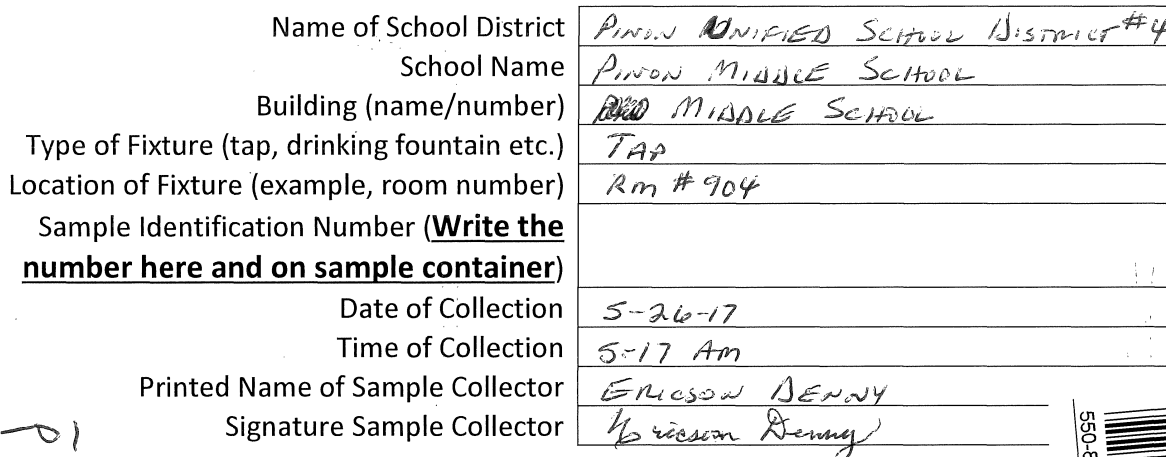 Name of School District PINON UNIFIED SCHOOL DISTRICT #4
School Name PINON MIDDLE SCHOOL
Building (name/number) MIDDLE SCHOOL
Type of Fixture (tap, drinking fountain etc.) TAP
Location of Fixture (example, room number) Rm # 904
Sample Identification Number (Write the
number here and on sample container)
Date of Collection 5-26-17
Time of Collection 5-17 Am
Printed Name of Sample Collector ERICSON DENNY
Signature Sample Collector Ericson Denny
550-8